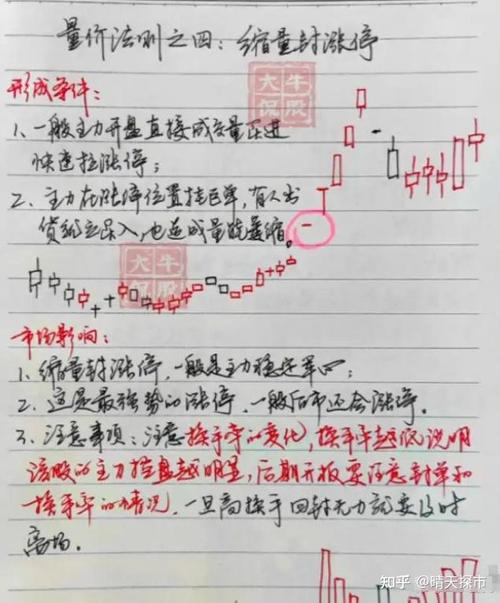 量价法则之四：缩量封涨停
大牛
侃股
形成条件：
1、一般主力开盘直接成交量跃进
快速拉涨停；
2、主力在涨停位置挂巨单，有人出
货就立马买入，也造成量能萎缩。
大牛
侃股
市场影响：
1、缩量封涨停，一般是主力稳定
2、这是最强势的涨停，一般后市还会涨停。
3、注意事项：注意换手率的变化，换手率越低说明
该股的主力控盘越明显，后期开板要注意封单和
换手率的情况，一旦高换手回封无力就要及时
离场。
知乎 @晴天探市